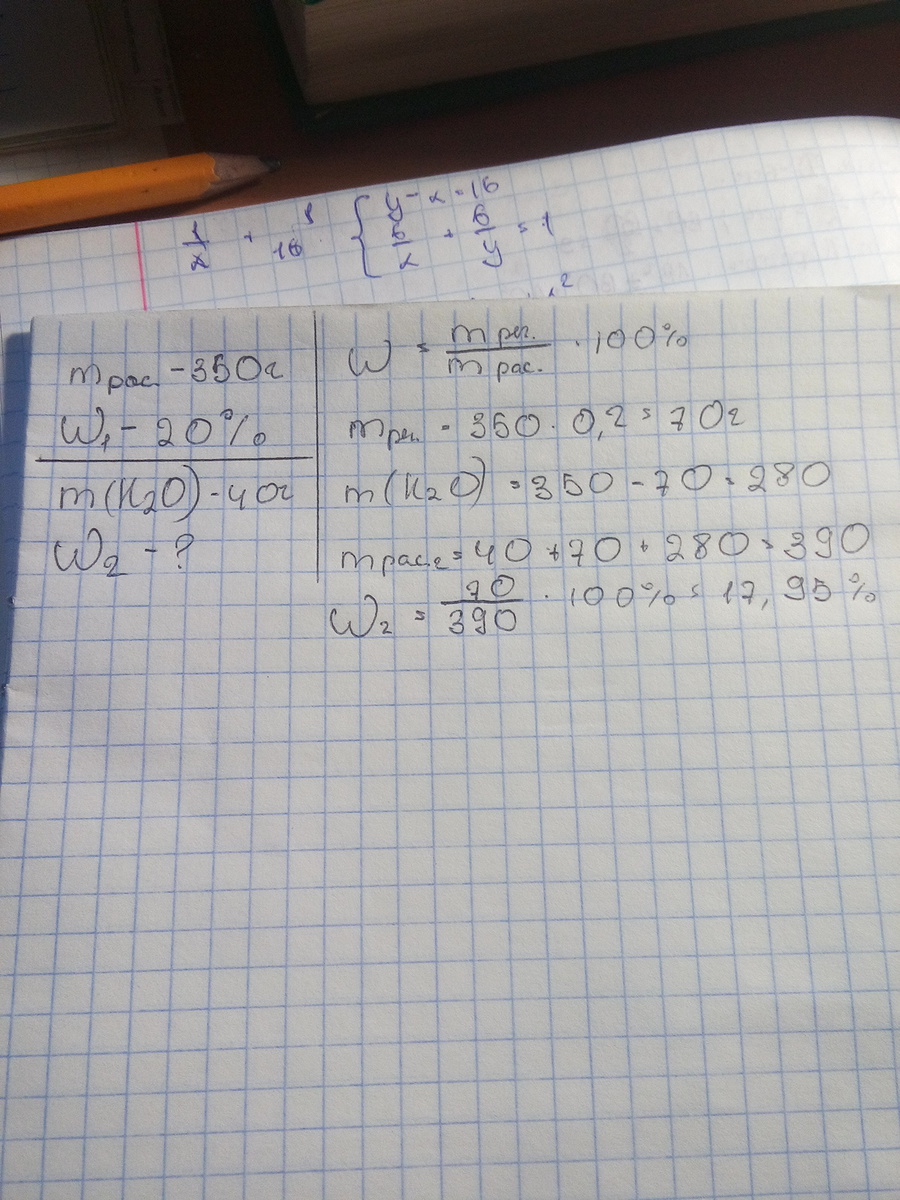 1/x + 1/16 { y - x = 16
6/x + 6/y = 1
x²
m рас. - 350г
W₁ - 20%
m(H₂O) - 40г
W₂ - ?
W = m рег. / m рас. · 100%
m рег. = 350 · 0,2 = 70г
m(H₂O) = 350 - 70 = 280
m рас₂ = 40 + 70 + 280 = 390
W₂ = 70/390 · 100% = 17,95%